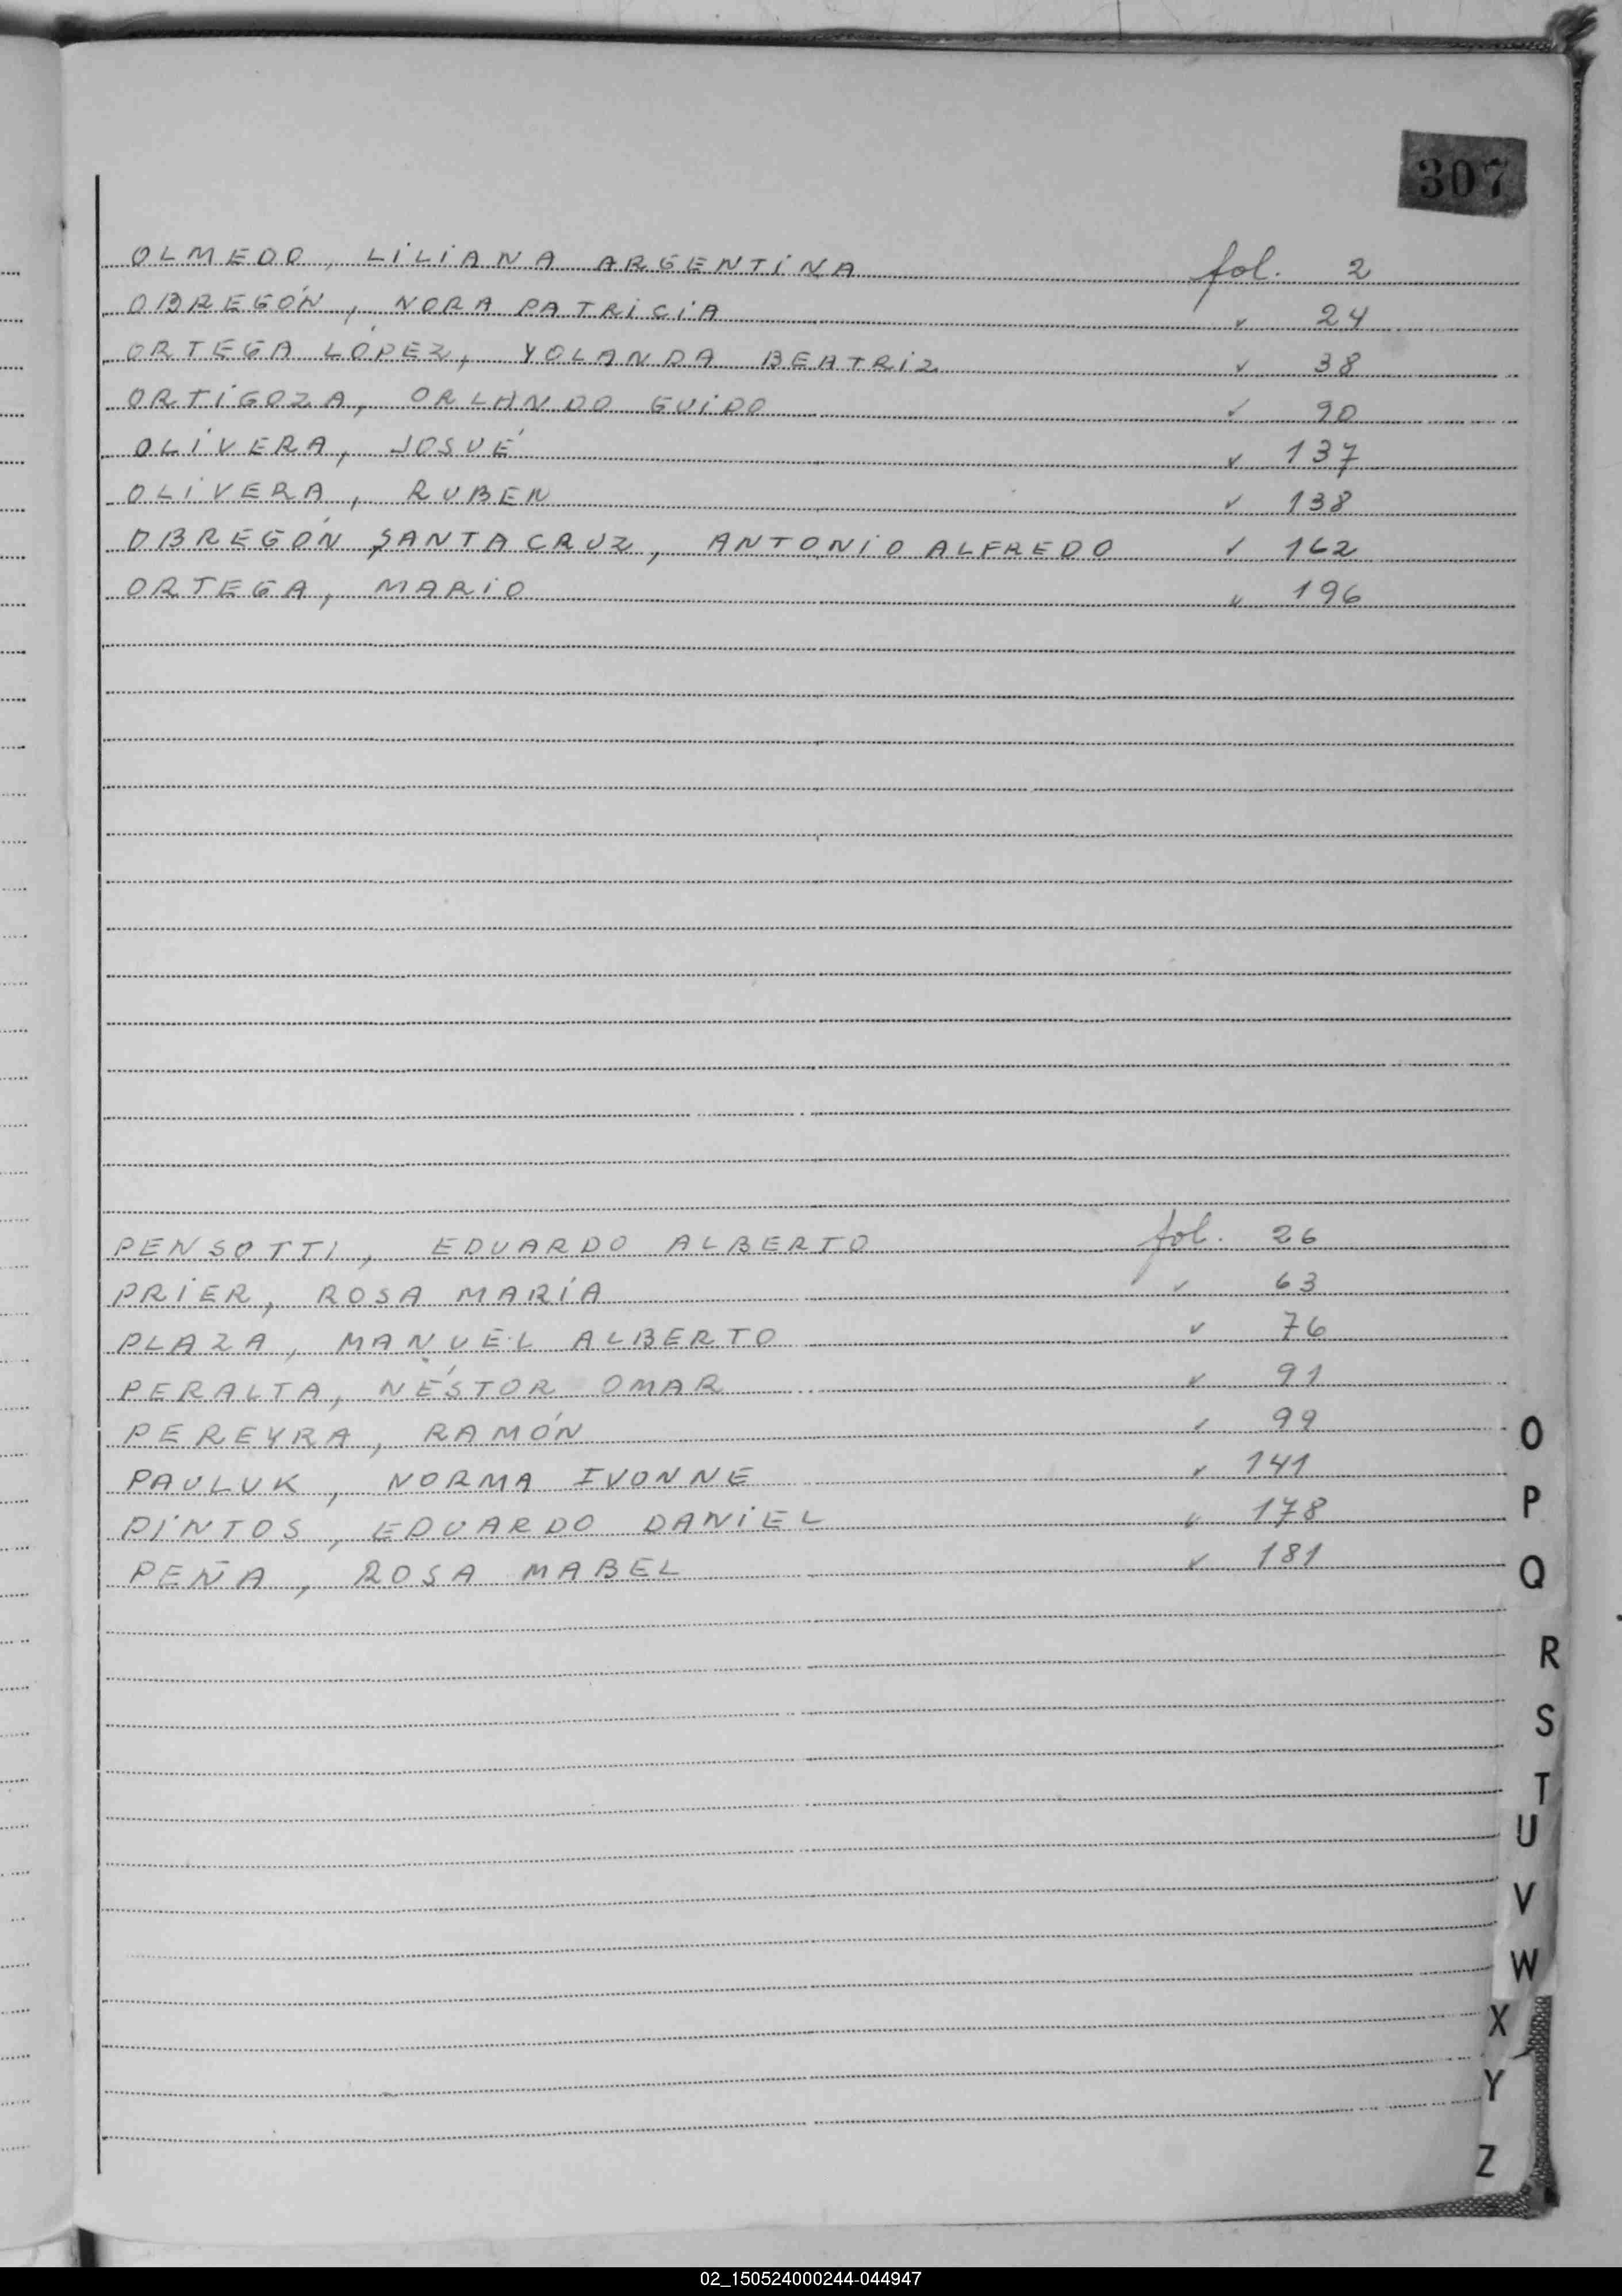 307
OLMEDO, LILIANA ARGENTINA fol. 2
OBREGÓN, NORA PATRICIA " 24
ORTEGA LÓPEZ, YOLANDA BEATRIZ " 38
ORTIGOZA, ORLANDO GUIDO " 90
OLIVERA, JOSUÉ " 137
OLIVERA, RUBEN " 138
OBREGÓN SANTA CRUZ, ANTONIO ALFREDO " 162
ORTEGA, MARIO " 196
PENSOTTI, EDUARDO ALBERTO fol. 26
PRIER, ROSA MARÍA " 63
PLAZA, MANUEL ALBERTO " 76
PERALTA, NÉSTOR OMAR " 91
PEREYRA, RAMÓN " 99
PAULUK, NORMA IVONNE " 141
PINTOS, EDUARDO DANIEL " 178
PEÑA, ROSA MABEL " 181
O
P
Q
R
S
T
U
V
W
X
Y
Z
02_150524000244-044947